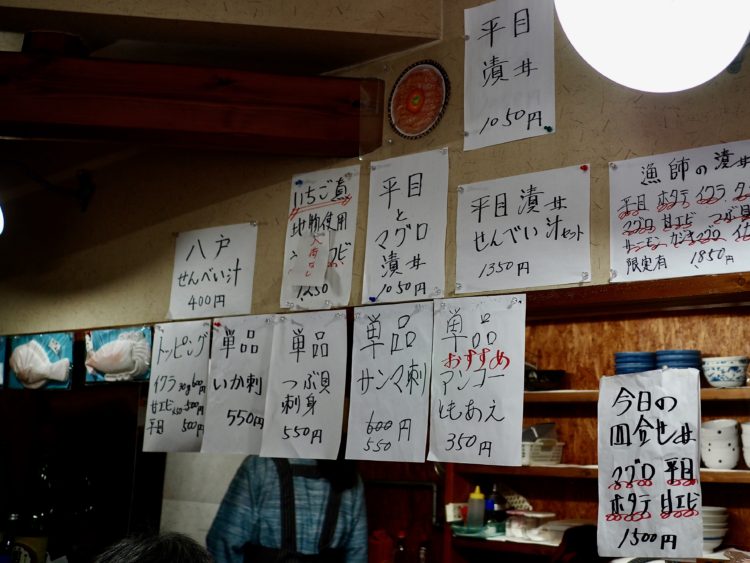 平目
漬丼
1050円
漁師の漬丼
平目 ホタテ イクラ
マグロ 甘エビ つぶ貝
サーモン カジキマグロ
限定有 1850円
いちご煮
地物使用
1250
平目
と
マグロ
漬丼
1050円
平目漬丼
せんべい汁セット
1350円
八戸
せんべい汁
400円
トッピング
イクラ 30g 600円
甘エビ 500円
平目 500円
単品
いか刺
550円
単品
つぶ貝
刺身
550円
単品
サンマ刺
600円
550
単品
おすすめ
アンコー
ともあえ
350円
今日の
四合せ丼
マグロ 平目
ホタテ 甘エビ
1500円